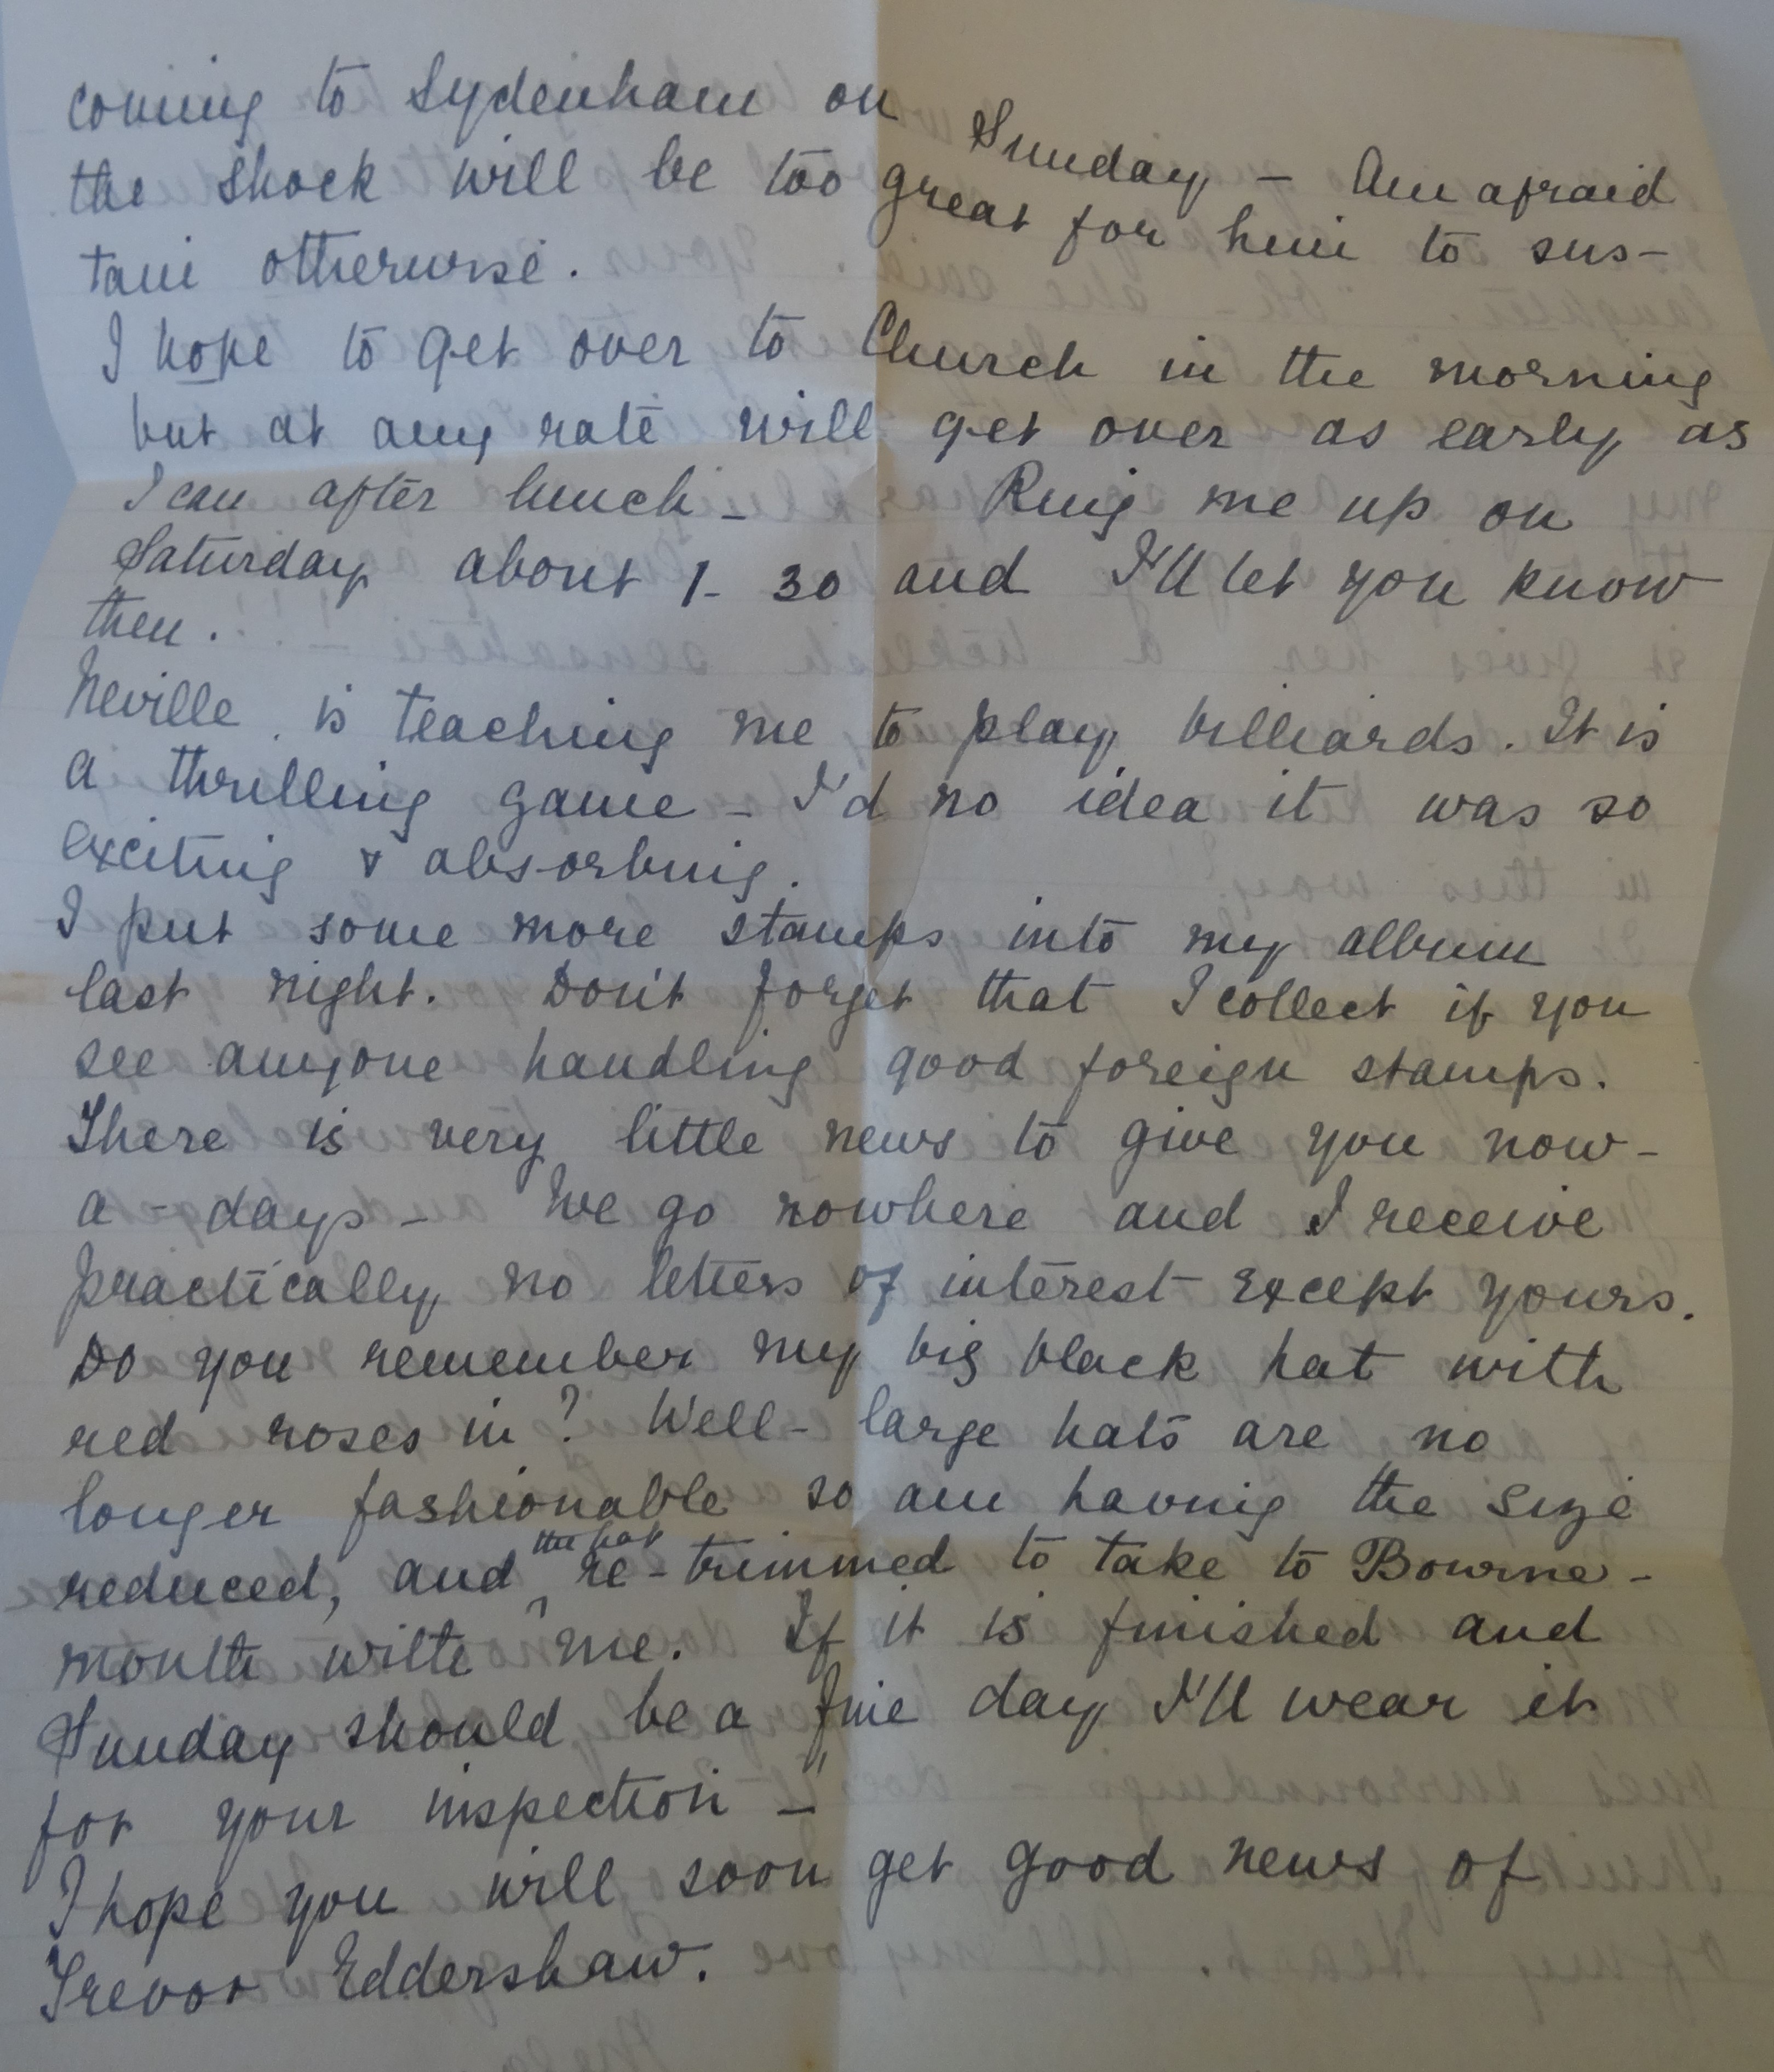 coming to Sydenham on Sunday – Am afraid
the shock will be too great for him to sus-
tain otherwise.
I hope to get over to Church in the morning
but at any rate will get over as early as
I can after lunch – Ring me up on
Saturday about 1-30 and I'll let you know
then.
Neville is teaching me to play billiards. It is
a thrilling game – I'd no idea it was so
exciting & absorbing.
I put some more stamps into my album
last night. Don't forget that I collect if you
see anyone handling good foreign stamps.
There is very little news to give you now-
a-days – We go nowhere and I receive
practically no letters of interest except yours.
Do you remember my big black hat with
red roses in? Well – large hats are no
longer fashionable so am having the size
reduced, and the hat re-trimmed to take to Bourne-
mouth with me. If it is finished and
Sunday should be a fine day I'll wear it
for your inspection –
I hope you will soon get good news of
Trevor Eddershaw.